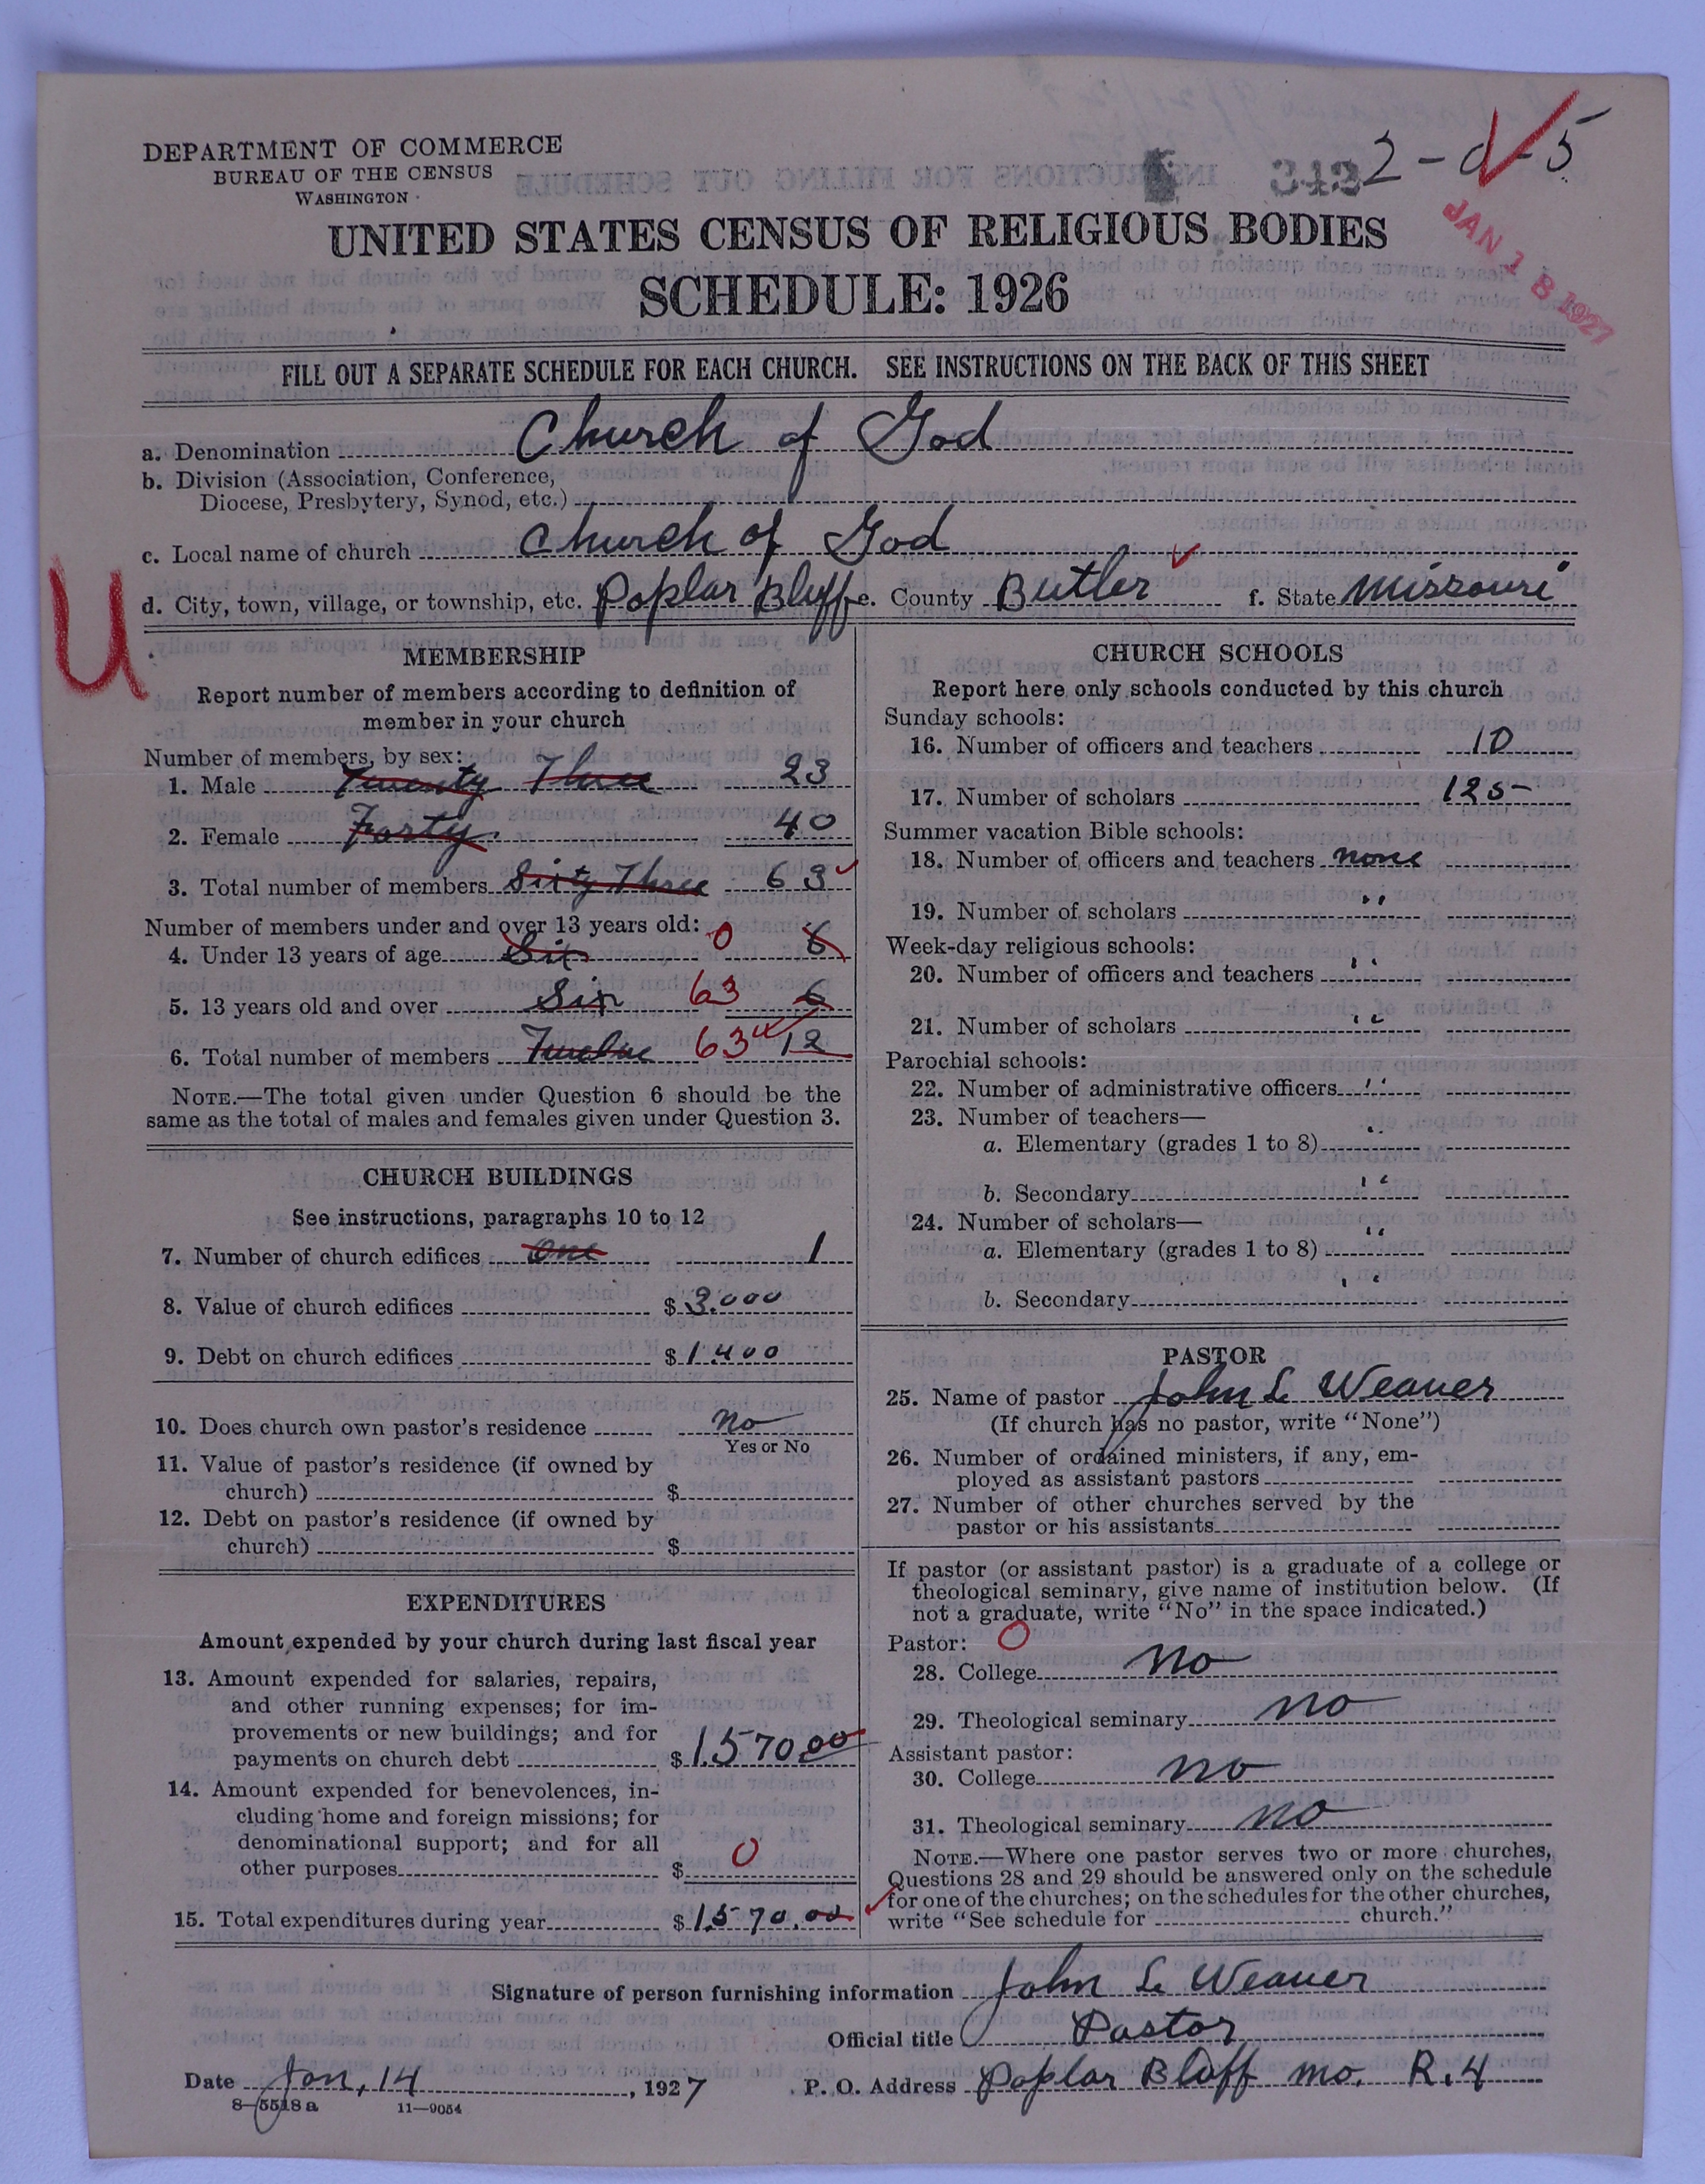 DEPARTMENT OF COMMERCE
BUREAU OF THE CENSUS
WASHINGTON
342 2-d-5
JAN 18 1927
UNITED STATES CENSUS OF RELIGIOUS BODIES
SCHEDULE: 1926
FILL OUT A SEPARATE SCHEDULE FOR EACH CHURCH. SEE INSTRUCTIONS ON THE BACK OF THIS SHEET
a. Denomination Church of God
b. Division (Association, Conference,
Diocese, Presbytery, Synod, etc.)
c. Local name of church Church of God
d. City, town, village, or township, etc. Poplar Bluff e. County Butler f. State Missouri
U
MEMBERSHIP
Report number of members according to definition of
member in your church
Number of members, by sex:
1. Male Twenty Three 23
2. Female Forty 40
3. Total number of members Sixty Three 63
Number of members under and over 13 years old:
4. Under 13 years of age Six 0 6
5. 13 years old and over Six 63 6
6. Total number of members Twelve 63 12
NOTE.—The total given under Question 6 should be the
same as the total of males and females given under Question 3.
CHURCH BUILDINGS
See instructions, paragraphs 10 to 12
7. Number of church edifices One 1
8. Value of church edifices $ 3.000
9. Debt on church edifices $ 1.400
10. Does church own pastor's residence no
Yes or No
11. Value of pastor's residence (if owned by
church) $
12. Debt on pastor's residence (if owned by
church) $
EXPENDITURES
Amount expended by your church during last fiscal year
13. Amount expended for salaries, repairs,
and other running expenses; for im-
provements or new buildings; and for
payments on church debt $ 1.570 00
14. Amount expended for benevolences, in-
cluding home and foreign missions; for
denominational support; and for all
other purposes $ 0
15. Total expenditures during year $ 1.570.00
CHURCH SCHOOLS
Report here only schools conducted by this church
Sunday schools:
16. Number of officers and teachers 10
17. Number of scholars 125
Summer vacation Bible schools:
18. Number of officers and teachers none
19. Number of scholars "
Week-day religious schools:
20. Number of officers and teachers "
21. Number of scholars "
Parochial schools:
22. Number of administrative officers "
23. Number of teachers—
a. Elementary (grades 1 to 8) "
b. Secondary "
24. Number of scholars—
a. Elementary (grades 1 to 8) "
b. Secondary "
PASTOR
25. Name of pastor John L Weaver
(If church has no pastor, write "None")
26. Number of ordained ministers, if any, em-
ployed as assistant pastors
27. Number of other churches served by the
pastor or his assistants
If pastor (or assistant pastor) is a graduate of a college or
theological seminary, give name of institution below. (If
not a graduate, write "No" in the space indicated.)
Pastor: 0
28. College no
29. Theological seminary no
Assistant pastor:
30. College no
31. Theological seminary no
NOTE.—Where one pastor serves two or more churches,
Questions 28 and 29 should be answered only on the schedule
for one of the churches; on the schedules for the other churches,
write "See schedule for church."
Signature of person furnishing information John L Weaver
Official title Pastor
Date Jan, 14, 1927 P. O. Address Poplar Bluff mo. R.4
8—5518a 11—9054